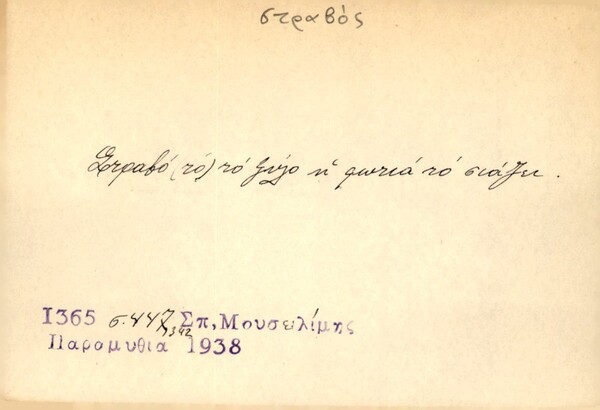 στραβός
Στραβό (τό) τό ξύλο ἡ φωτιά τό σιάζει.
1365 σ. 447 Σπ, Μουσελίμης
Παραμυθια 1938